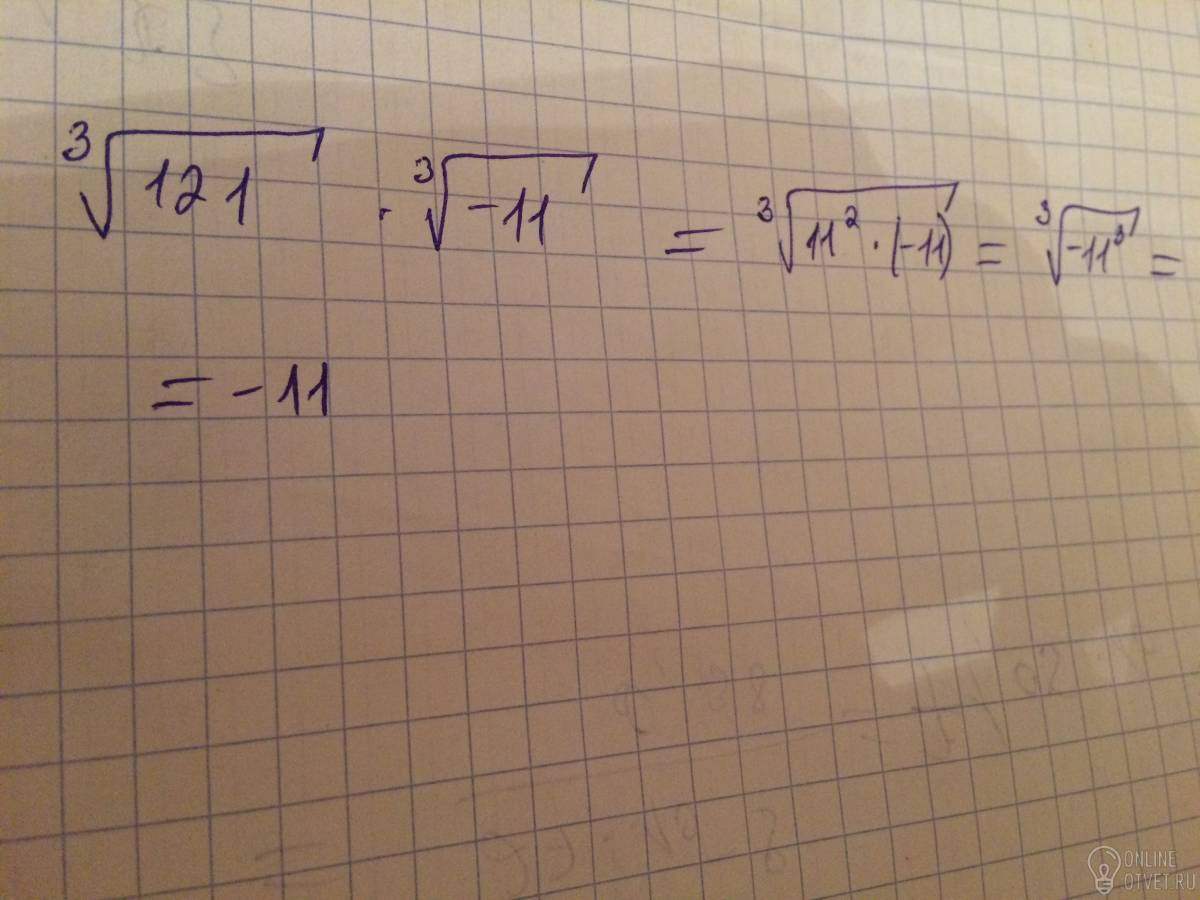 ∛121 · ∛-11 = ∛11² · (-11) = ∛-11³ =
= -11
ONLINE
OTVET.RU